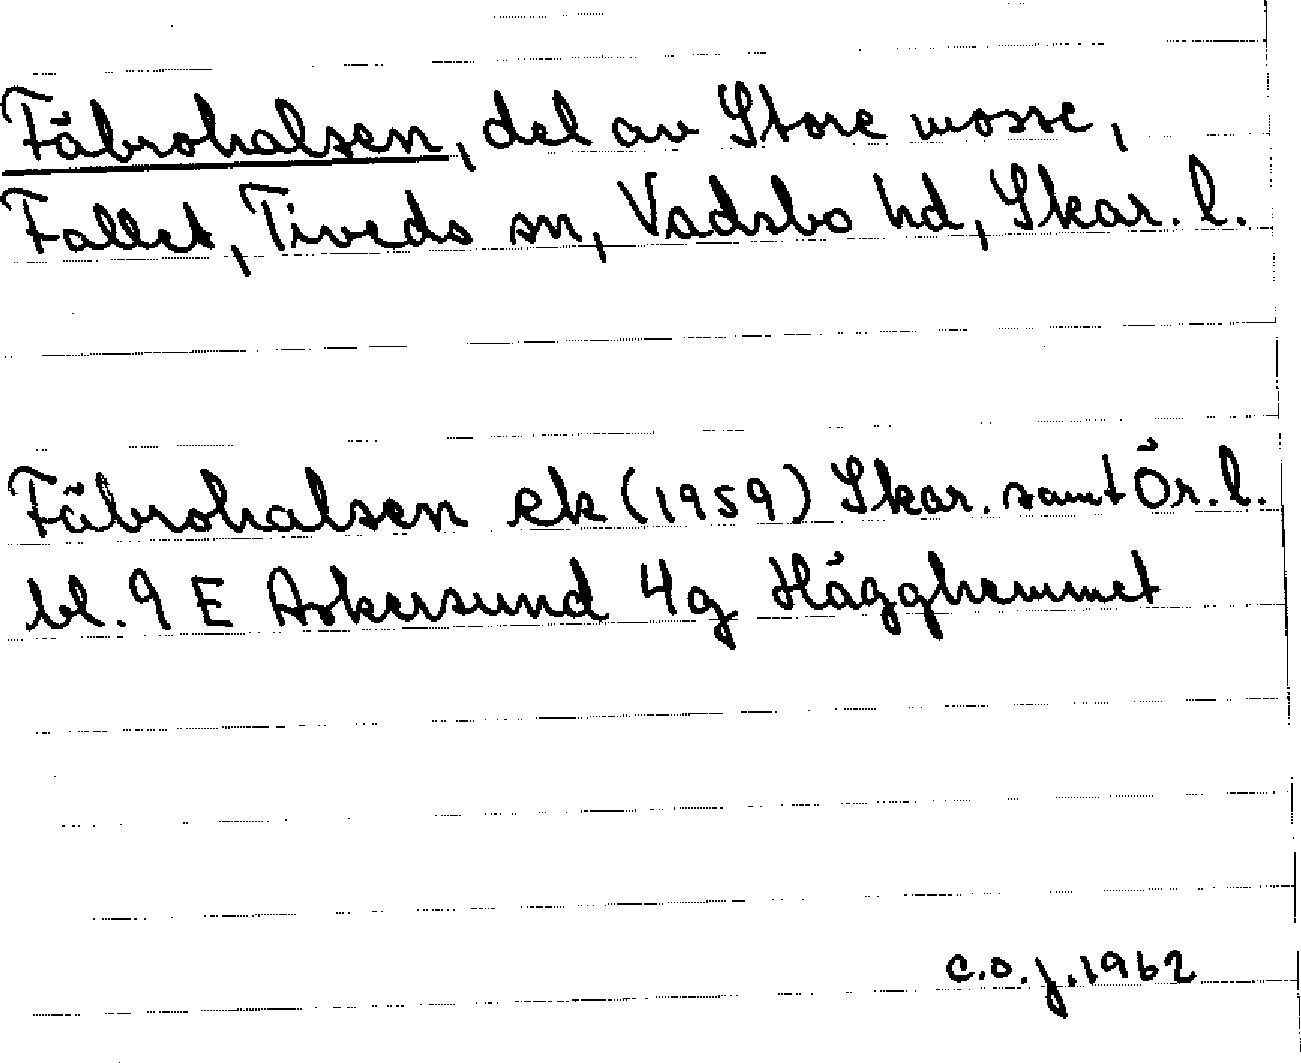 Fäbrohalsen, del av Store mosse,
Fallet, Tiveds sn, Vadsbo hd, Skar. l.
Fäbrohalsen ek (1959) Skar. samt Ör. l.
bl. 9 E Askersund 4g Hägghemmet
C.O.J. 1962